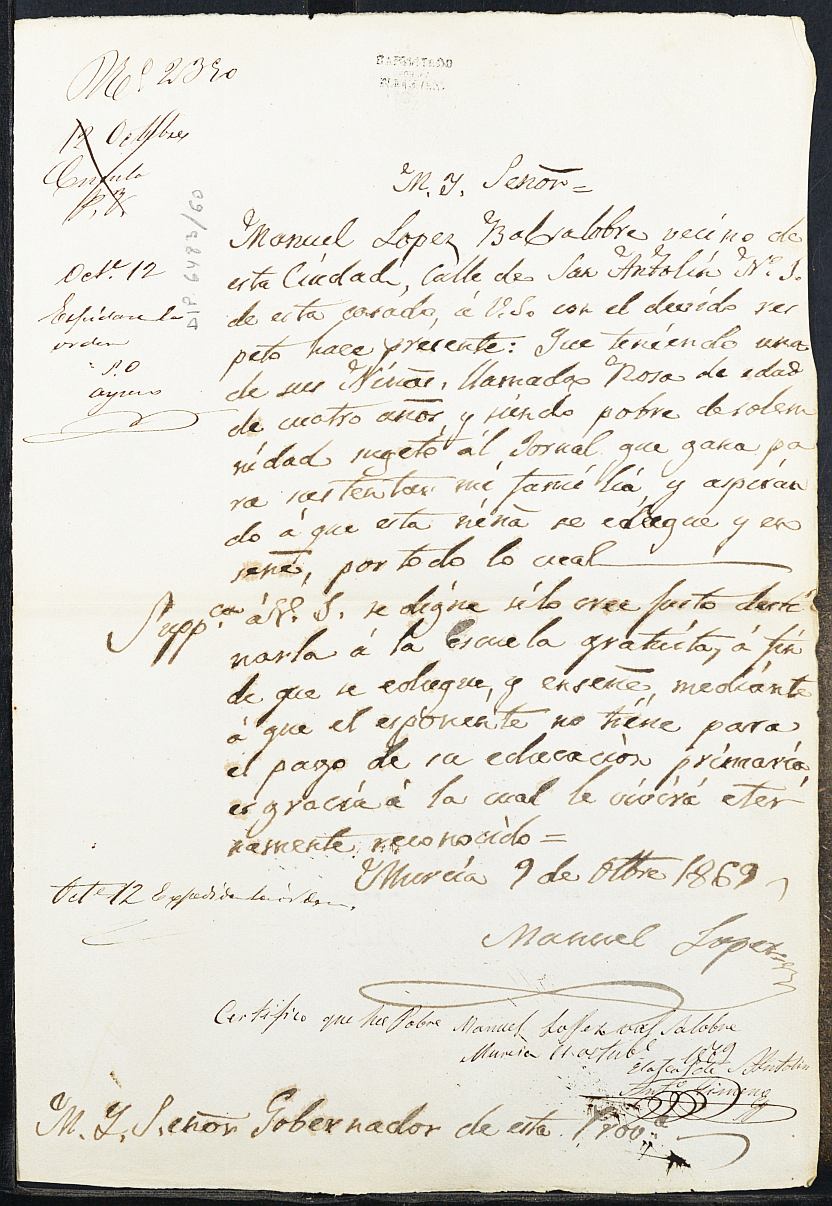 12 Octubre
M. Y. Señor=
Manuel Lopez Balsalobre vecino de
esta Ciudad, Calle de San Antolin Nº. 5.
de esta casado, á V.S. con el devido res
peto hace presente: Que teniendo una
de sus Niñas, llamada Rosa de edad
de cuatro años, y siendo pobre de solem
nidad sugeto ál Jornal que gana pa
ra sustentar mi familia, y aspiran
do á que esta niña se eduque y en
señe, por todo lo cual
Supp.ca á V. S. se digne si lo cree justo desti
narla á la escuela gratuita, á fin
de que se eduque, y enseñe, mediante
á que el esponente no tiene para
el pago de su educacion primaria,
es gracia á la cual le vivirá eter
namente reconocido=
Murcia 9 de Otbre 1869
Manuel Lopez
Oct.e 12
Espídase la
orden
P.O
DIP. 6483/60
Oct.e 12 Expedida la órden.
Certifico que hes Pobre Manuel Lopez valsalobre
Murcia 11 octubre 1869
El Alcalde S. Antolin
M. Y. Señor Gobernador de esta Prov.a